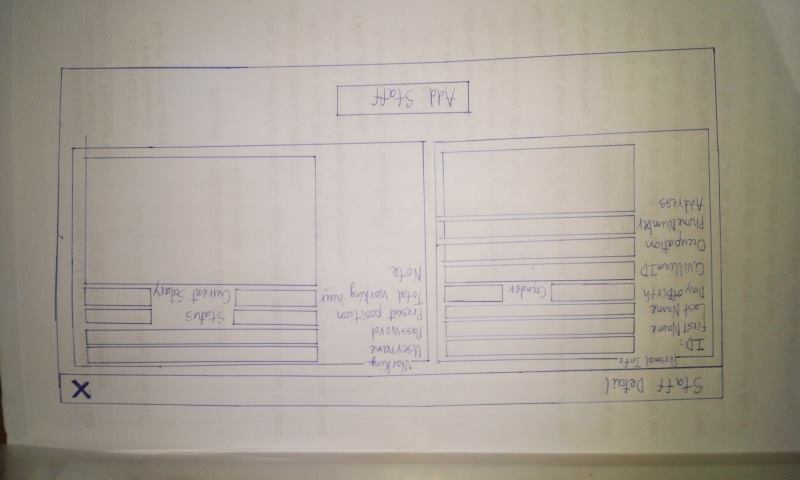 Staff Detail X
Personal Info
ID:
First Name
Last Name
Day of Birth Gender
CivilianID
Occupation
Phone Number
Address
Working
Username
Password
Present position Status
Total working hour Current Salary
Note
Add Staff